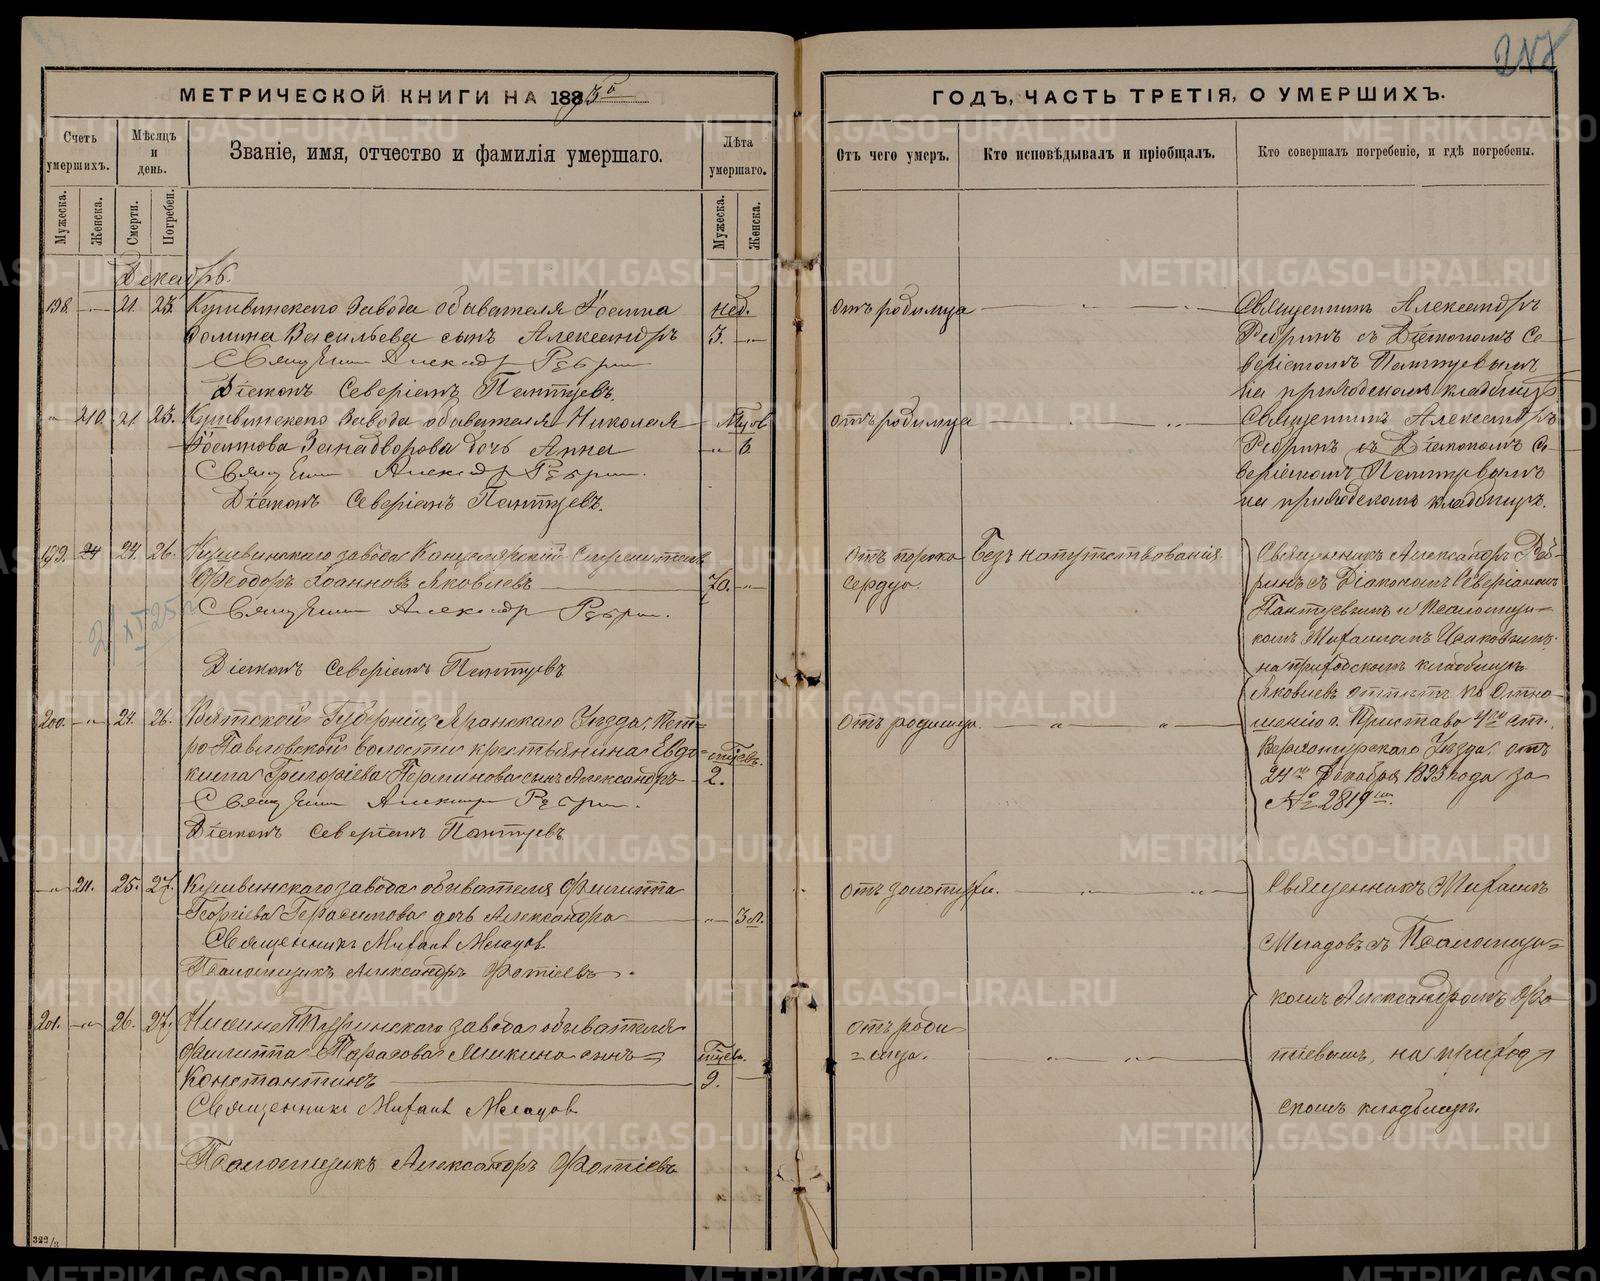 217
МЕТРИЧЕСКОЙ КНИГИ НА 1893го
ГОДЪ, ЧАСТЬ ТРЕТІЯ, О УМЕРШИХЪ.
Счетъ умершихъ.
Мѣсяцъ и день.
Званіе, имя, отчество и фамилія умершаго.
Лѣта умершаго.
Отъ чего умеръ.
Кто исповѣдывалъ и пріобщалъ.
Кто совершалъ погребеніе, и гдѣ погребены.
Мужеска.
Женска.
Смерти.
Погребен.
Мужеска.
Женска.
Декабрь.
198. — 21. 23. Кушвинскаго Завода обывателя Іоанна нед.
Васильева сынъ Александръ 3. "
Священникъ Александръ Ребринъ
Діаконъ Северіанъ Пантуевъ.
отъ родимца
Священникъ Александръ
Ребринъ съ Діакономъ Се-
веріаномъ Пантуевымъ
на приходскомъ кладбищѣ
" 210. 21. 23. Кушвинскаго Завода обывателя Николая
Іоаннова Занадворова дочь Анна " 6
Священникъ Александръ Ребринъ.
Діаконъ Северіанъ Пантуевъ.
отъ родимца
Священникъ Александръ
Ребринъ съ Діакономъ Се-
веріаномъ Пантуевымъ
на приходскомъ кладбищѣ.
199. 24. 26. Кушвинскаго завода Канцелярскій Служитель
Феодоръ Іоанновъ Яковлевъ 70. "
Священникъ Александръ Ребринъ.
Діаконъ Северіанъ Пантуевъ
отъ порока
сердца.
Безъ напутствованія
Священникъ Александръ Реб-
ринъ съ Діакономъ Северіаномъ
Пантуевымъ и Псаломщи-
комъ Михаиломъ
на приходскомъ кладбищѣ
Яковлевъ отпѣтъ по Отно-
шенію г. Пристава 4го ст.
Верхотурскаго Уѣзда, отъ
24го Декабря 1893 года за
№ 2819
200. " 24. 26. Вятской Губерніи, Яранскаго Уѣзда, Пет-
ро-Павловской волости крестьянина Евдо-
кима Григоріева Перминова сынъ Александръ 2.
Священникъ Александръ Ребринъ.
Діаконъ Северіанъ Пантуевъ
отъ родимца.
" 211. 25. 27. Кушвинскаго завода обывателя Филиппа
Георгіева Герасимова дочь Александра " 3 л.
Священникъ Михаилъ
Псаломщикъ Александръ Фотіевъ.
отъ золотухи.
Священникъ Михаилъ
съ Псаломщи-
комъ Александромъ Фо-
тіевымъ, на приход-
скомъ кладбищѣ.
201. " 26. 27. Нижнетуринскаго завода обывателя
Филиппа Тарасова сынъ
Константинъ 9.
Священникъ Михаилъ
Псаломщикъ Александръ Фотіевъ
отъ роди-
мца.
322/3
METRIKI.GASO-URAL.RU